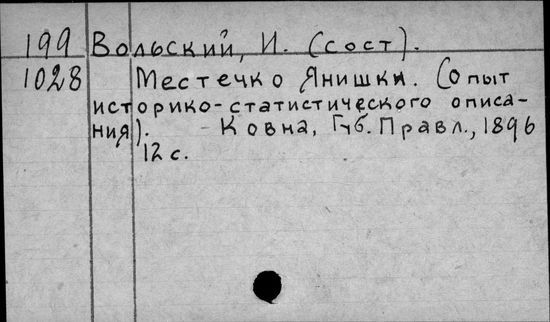 199 Вольский, И. (сост).
1028 Местечко Янишки. (Опыт
историко-статистического описа-
ния). - Ковна, Губ. Правл., 1896
12 с.